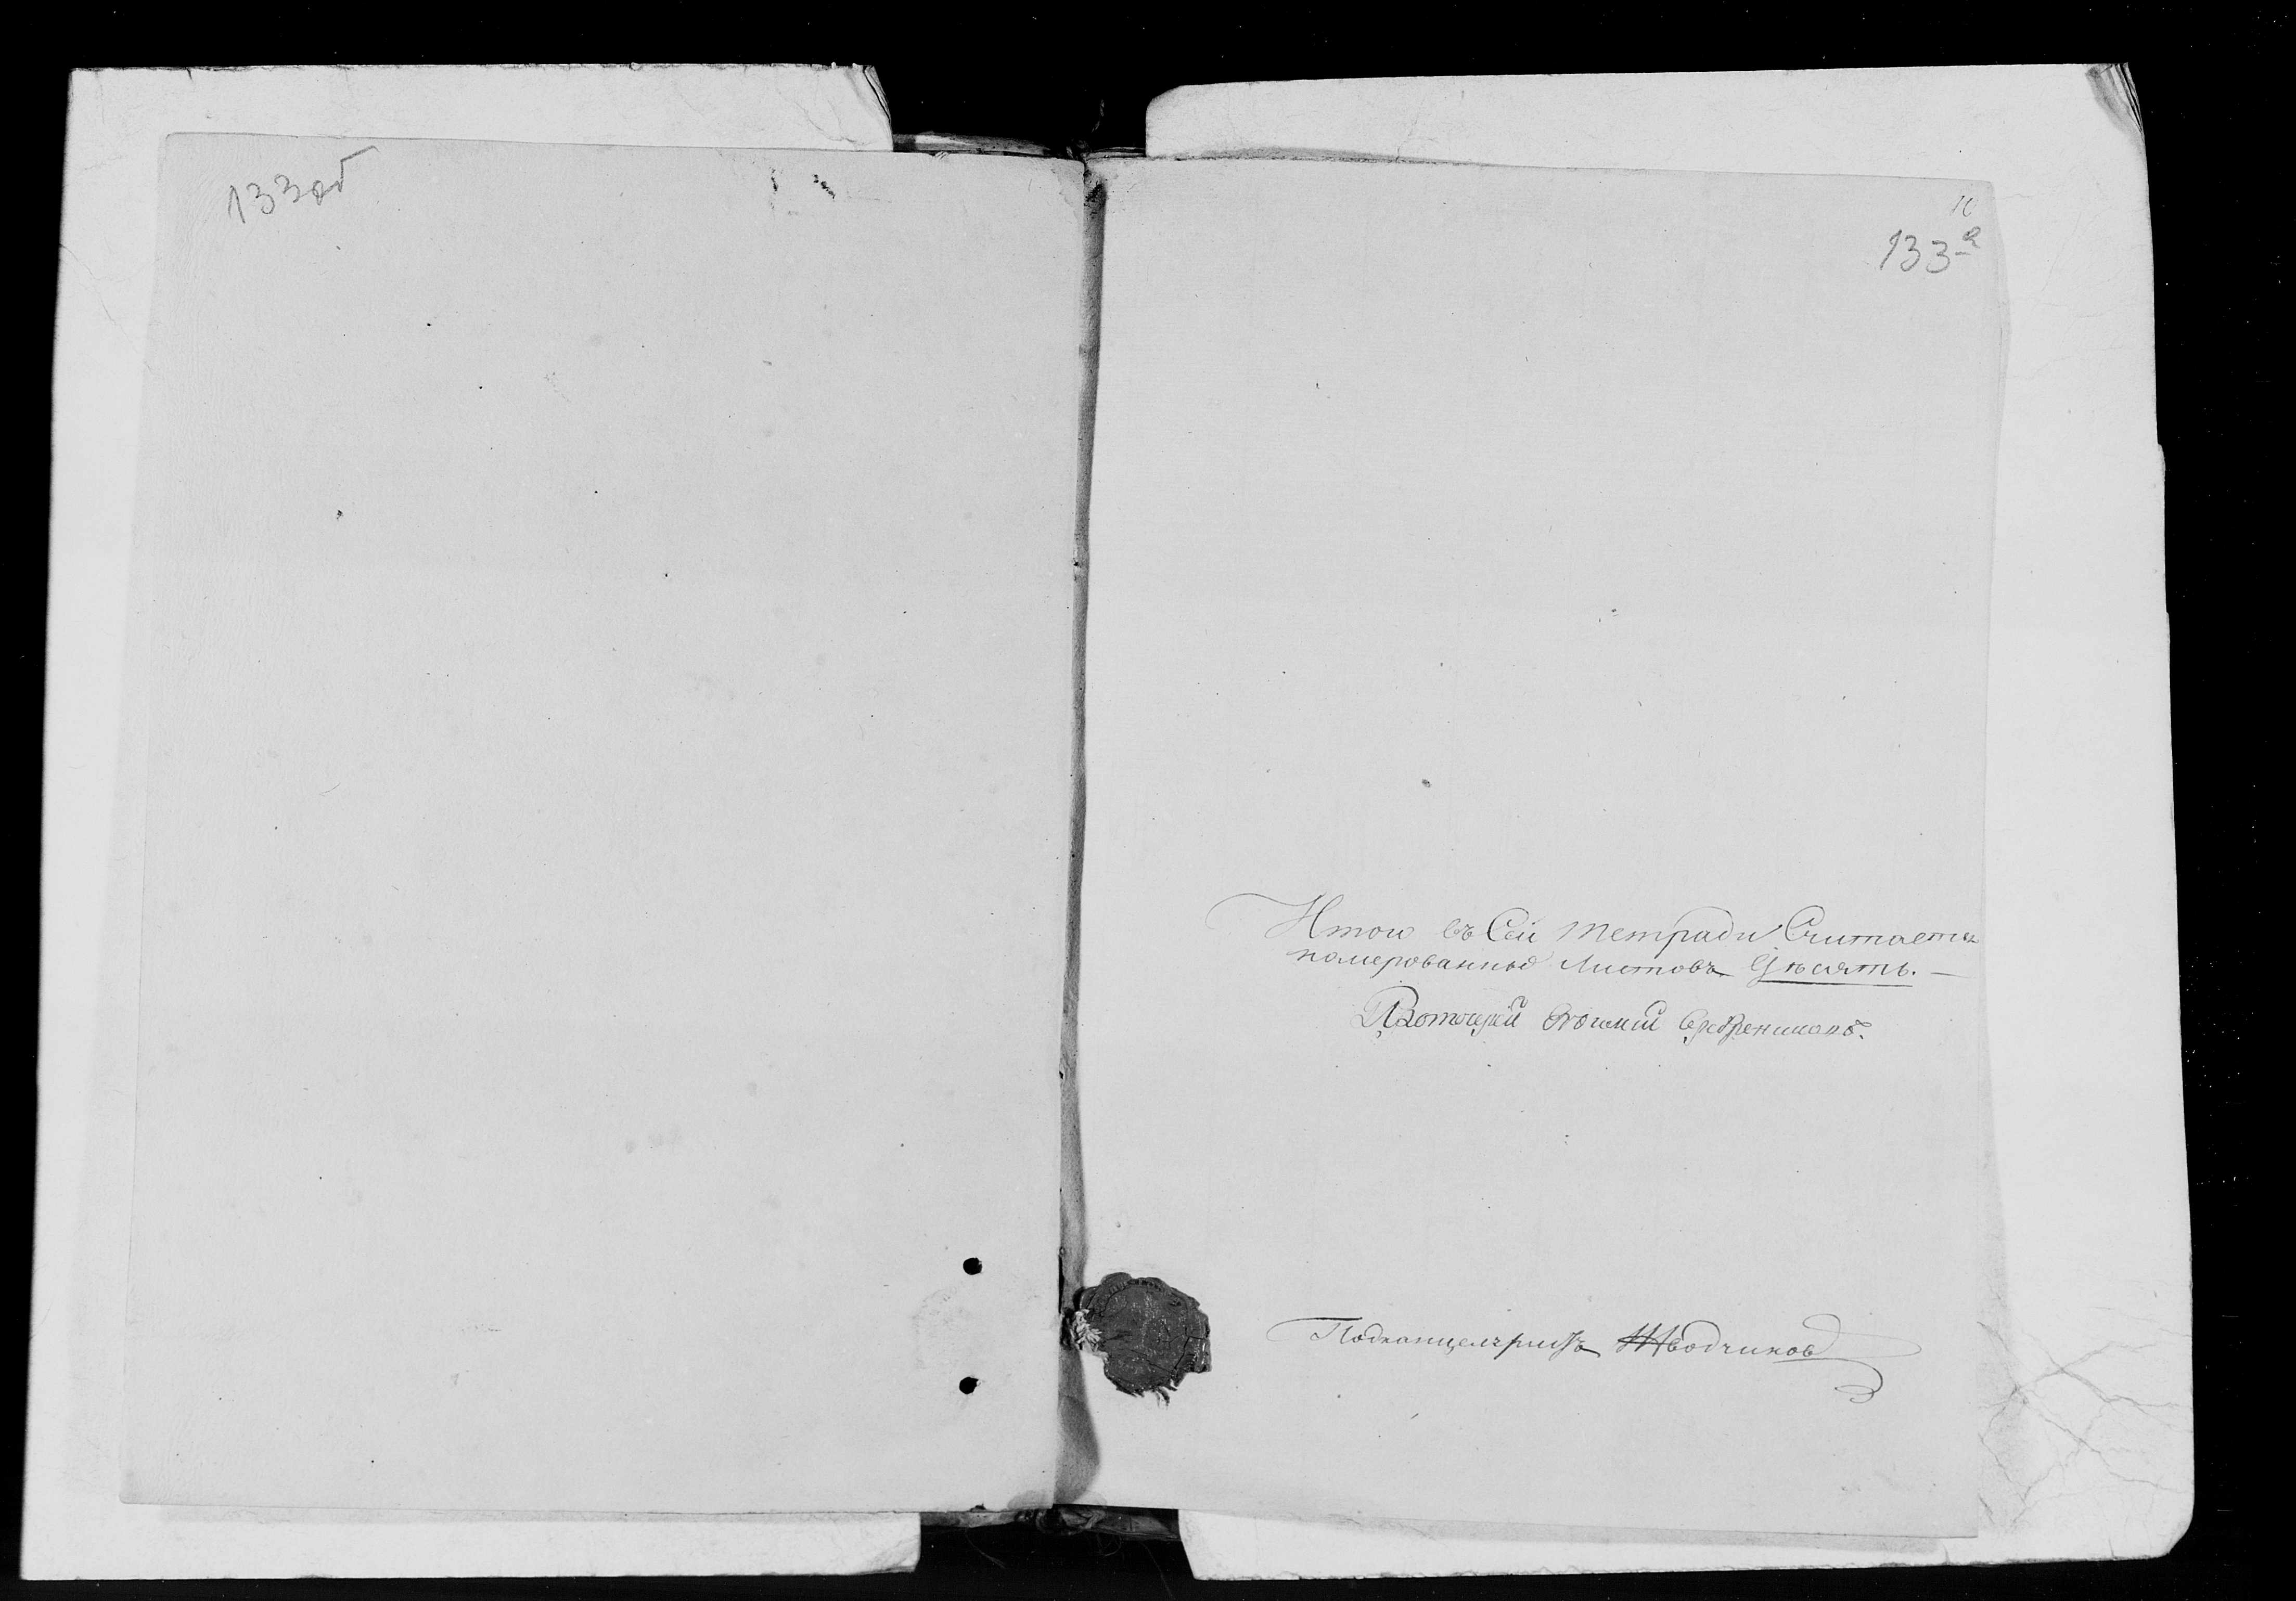 133об
10
133а
Итого въ Сей тетради Считается
номерованныхъ листовъ Десять.
Протоиерей Серебрениковъ.
Подканцеляристъ